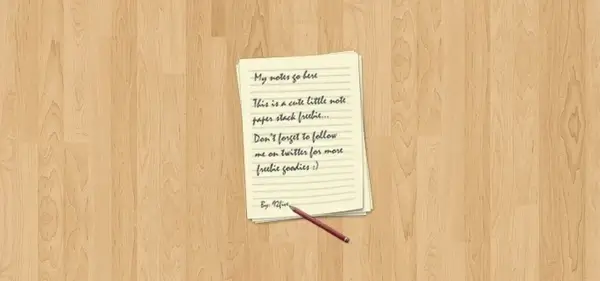 My notes go here
This is a cute little note
paper stack freebie...
Don't forget to follow
me on twitter for more
freebie goodies :)
By: 92five